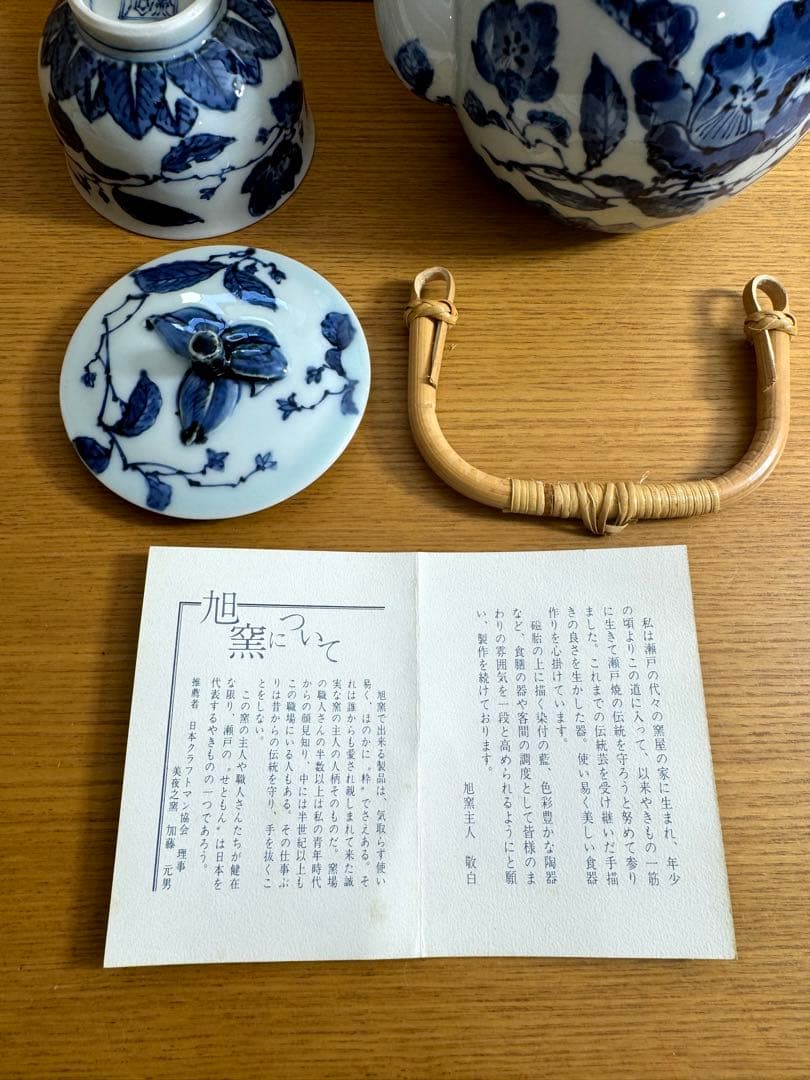 私は瀬戸の代々の窯屋の家に生まれ、年少
の頃よりこの道に入って、以来やきもの一筋
に生きて瀬戸焼の伝統を守ろうと努めて参り
ました。これまでの伝統芸を受け継いだ手描
きの良さを生かした器。使い易く美しい食器
作りを心掛けています。
磁胎の上に描く染付の藍、色彩豊かな陶器
など、食膳の器や客間の調度として皆様のま
わりの雰囲気を一段と高められるようにと願
い、製作を続けております。
旭窯主人 敬白
旭窯について
旭窯で出来る製品は、気取らず使い
易く、ほのかに〝粋〟でさえある。そ
れは誰からも愛され親しまれて来た誠
実な窯の主人の人柄そのものだ。窯場
の職人さんの半数以上は私の青年時代
からの顔見知り、中には半世紀以上も
この職場にいる人もある。その仕事ぶ
りは昔からの伝統を守り、手を抜くこ
とをしない。
この窯の主人や職人さんたちが健在
な限り、瀬戸の〝せともん〟は日本を
代表するやきものの一つであろう。
推薦者 日本クラフトマン協会 理事
美夜之窯 加藤 元男